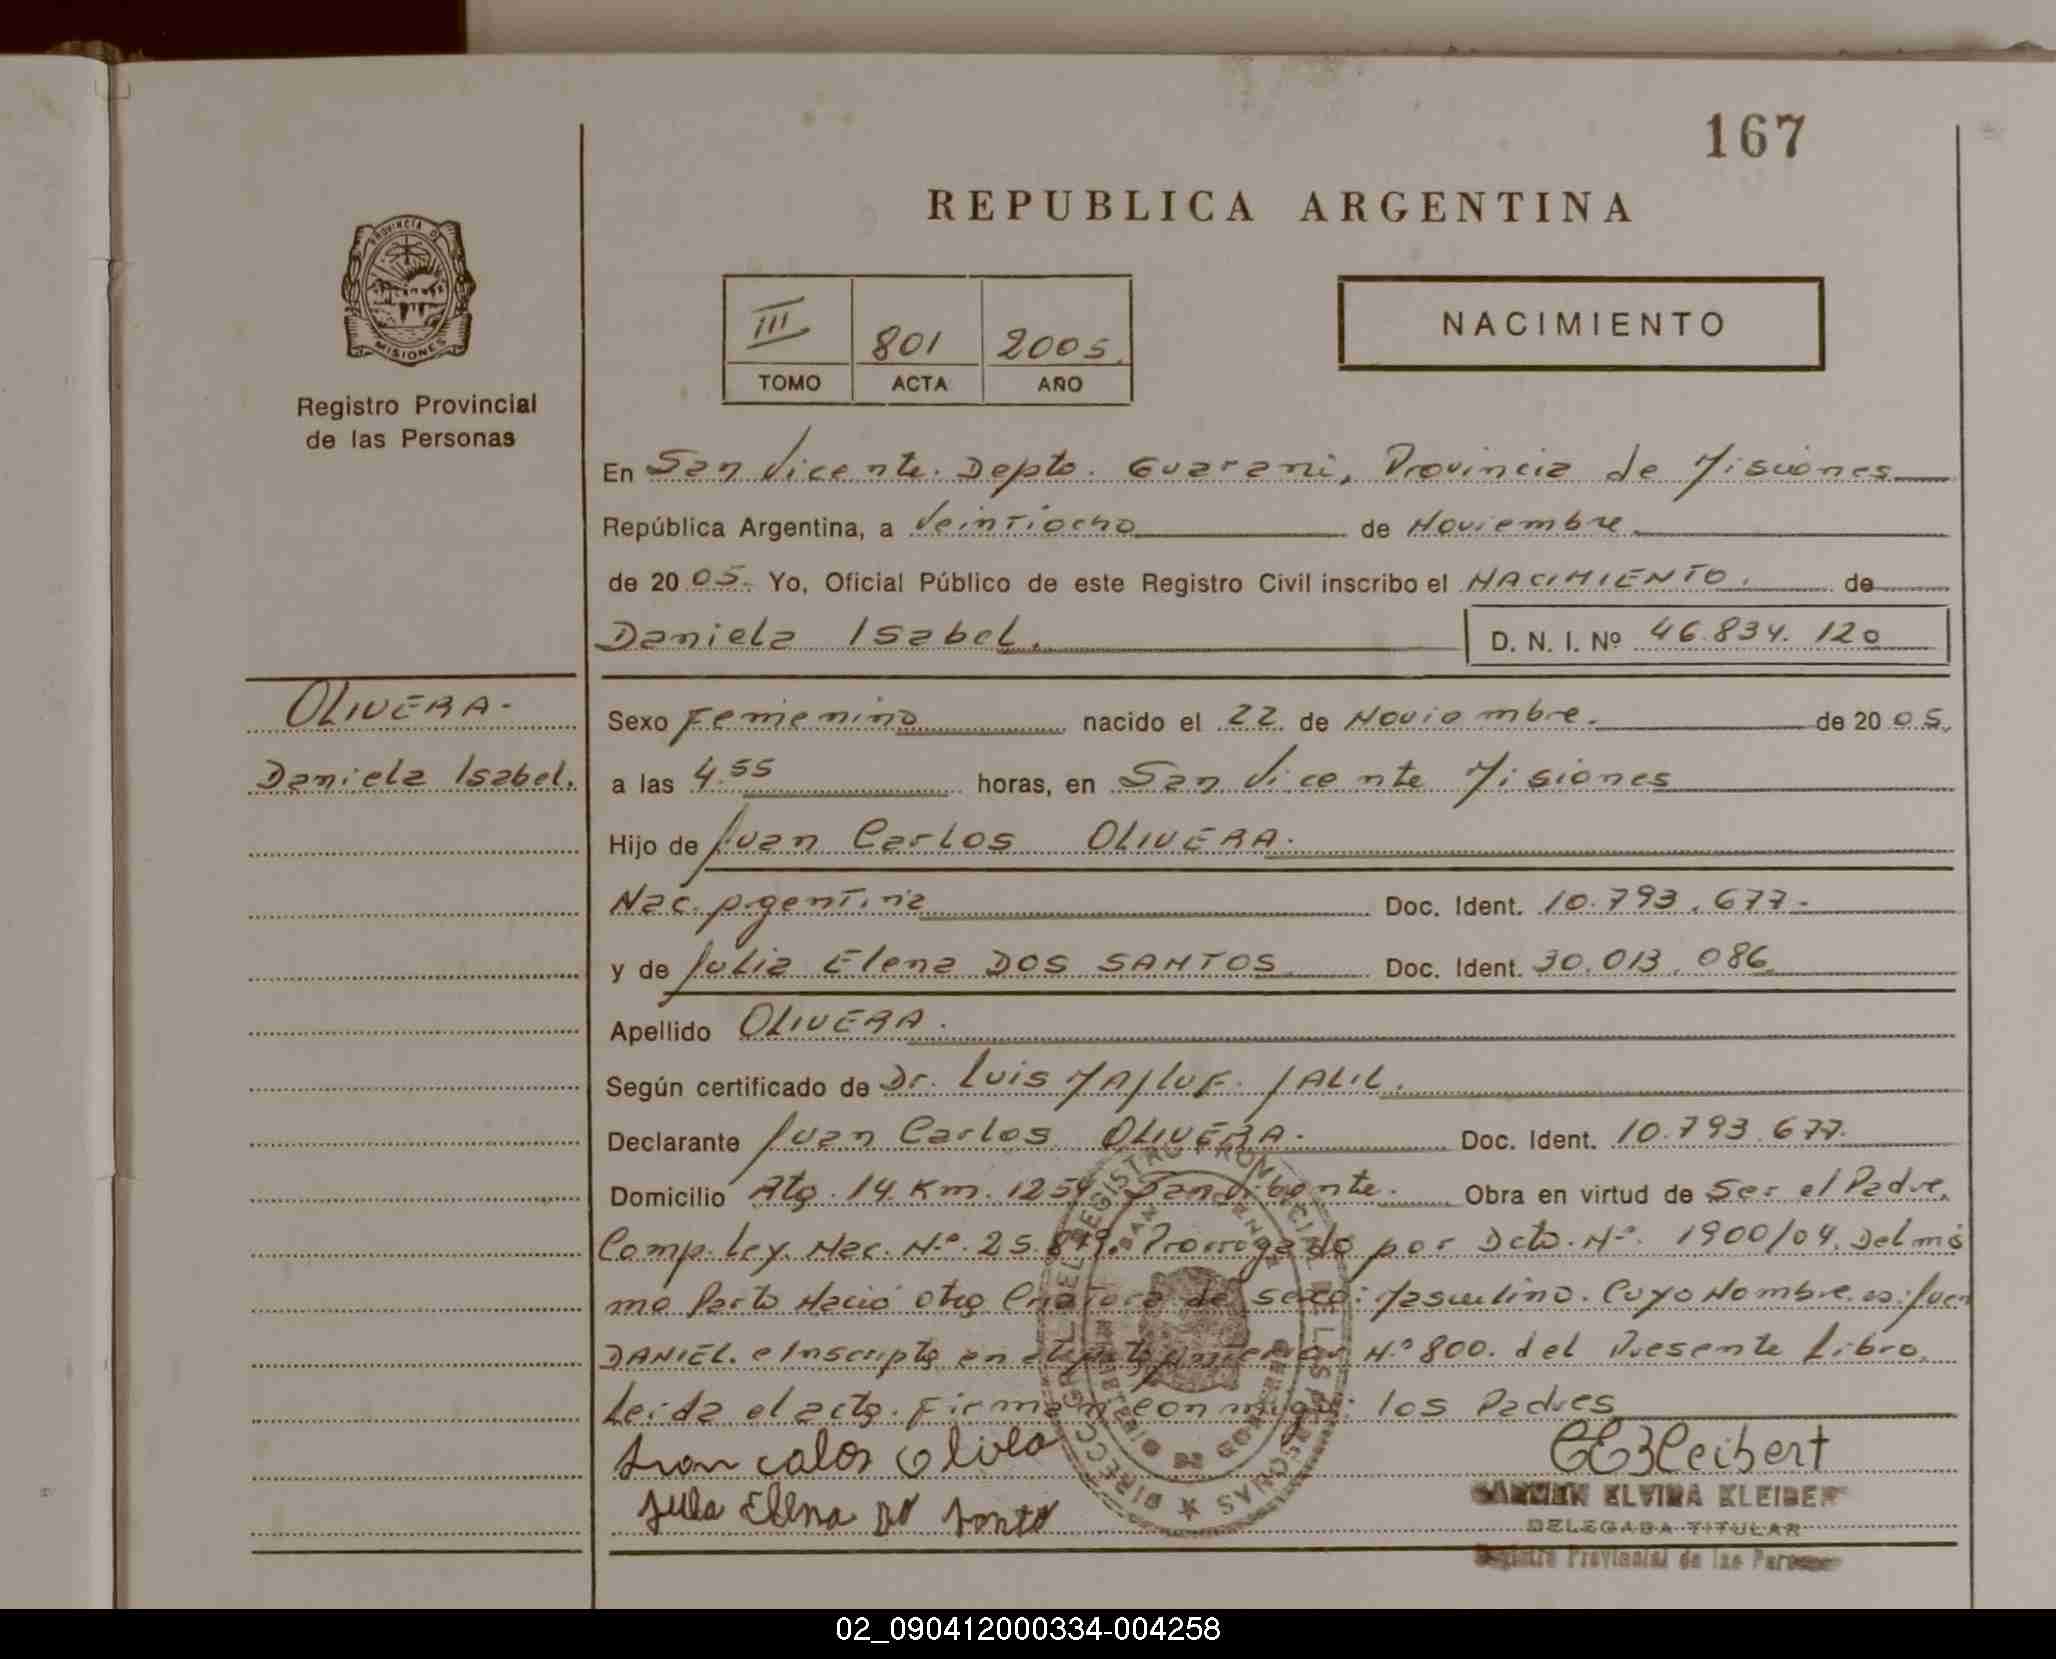 167
REPUBLICA ARGENTINA
PROVINCIA DE
MISIONES
Registro Provincial
de las Personas
III 801 2005.
TOMO ACTA AÑO
NACIMIENTO
En San Vicente. Depto. Guarani, Provincia de Misiones
República Argentina, a Veintiocho de Noviembre
de 20 05. Yo, Oficial Público de este Registro Civil inscribo el NACIMIENTO. de
Daniela Isabel. D. N. I. Nº 46.834.120
OLIVERA-
Daniela Isabel.
Sexo Femenino nacido el 22 de Noviembre. de 20 05.
a las 4.55 horas, en San Vicente Misiones
Hijo de Juan Carlos OLIVERA.
Nac. Argentina Doc. Ident. 10.793.677-
y de Julia Elena DOS SANTOS Doc. Ident. 30.013.086
Apellido OLIVERA.
Según certificado de Dr. Luis JALIL.
Declarante Juan Carlos OLIVERA. Doc. Ident. 10.793.677.
Domicilio Km. 1254 San Vicente. Obra en virtud de Ser el Padre.
Comp. Ley. Nac. Nº 25.819. Prorrogado por Dcto. Nº 1900/04. Del mis
mo Parto Nació otra Criatura de sexo: Masculino. Cuyo Nombre es: Juan
DANIEL. e Inscripto en el Acta Anterior Nº 800. del Presente Libro.
Leida el acta. Firman con migo: los Padres
Elena
CEKleibert
CARMEN ELVIRA KLEIBER
DELEGADA TITULAR
Registro Provincial de las Personas
DIRECC. GRAL. DEL REGISTRO PROVINCIAL DE LAS PERSONAS
MINISTERIO DE GOBIERNO
SAN VICENTE
02_090412000334-004258